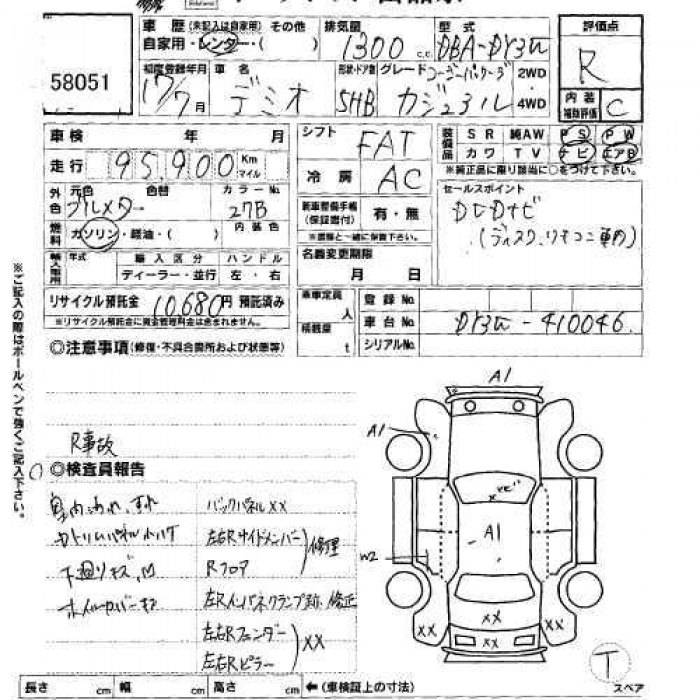 車歴 (未記入は自家用) その他
自家用・レンター・( )
排気量
1300 c.c.
型式
DBA-DY3W
評価点
R
58051
初度登録年月
17/7月
車名
デミオ
形状・ドア数
5HB
グレード
コージーパッケージ
カジュアル
2WD
4WD
内装
補助評価
C
車検 年 月
シフト
FAT
装備品
SR 純AW PS PW
カワ TV ナビ エアB
※純正品に限り該当に○をつけて下さい。
走行 95,900 Km
マイル
冷房
AC
外色
元色 色替 カラーNo.
27B
セールスポイント
DVDナビ
(ディスク、リモコン車内)
新車整備手帳
(保証書付)
有・無
※書類と一緒に保管下さい。
燃料
ガソリン・軽油・( )
内装色
輸入車用
年式 輸入区分 ハンドル
ディーラー・並行 左・右
名義変更期限
月 日
リサイクル預託金 10,680円 預託済み
※リサイクル預託金に資金管理料金は含まれません。
乗車定員
人
積載量
t
登録No.
車台No. DY3W-410046
シリアルNo.
◎注意事項(修復・不具合箇所および状態等)
※ご記入の際はボールペンで強くご記入下さい。
R事故
◎検査員報告
バックパネルXX
左右Rサイドメンバー
修理
Rフロア
下廻りキズ、凹
ホイルカバーキズ
左右Rフェンダー
XX
左右Rピラー
A1
A1
XXビ
A1
W2
XX
XX
XX
XX
T
スペア
長さ cm 幅 cm 高さ cm ←(車検証上の寸法)